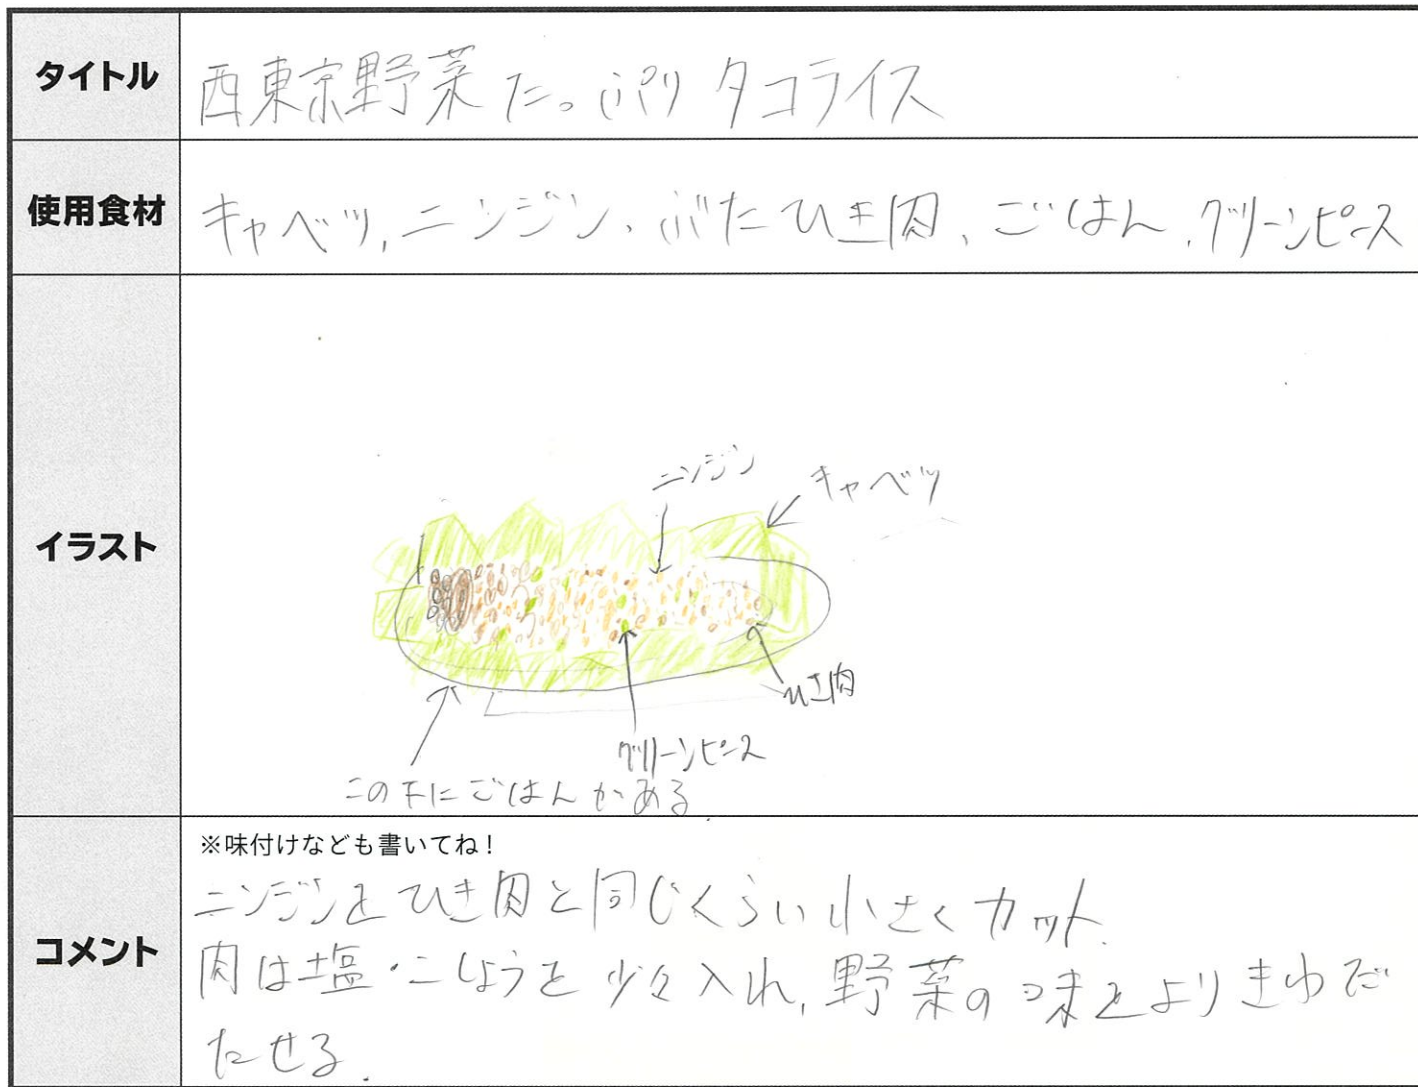 タイトル
西東京野菜たっぷりタコライス
使用食材
キャベツ,ニンジン、ぶたひき肉、ごはん、グリーンピース
イラスト
ニンジン
キャベツ
ひき肉
グリーンピース
この下にごはんがある
コメント
※味付けなども書いてね！
ニンジンをひき肉と同じくらい小さくカット.
肉は塩・こしょうを少々入れ,野菜の味をよりきわだ
たせる.